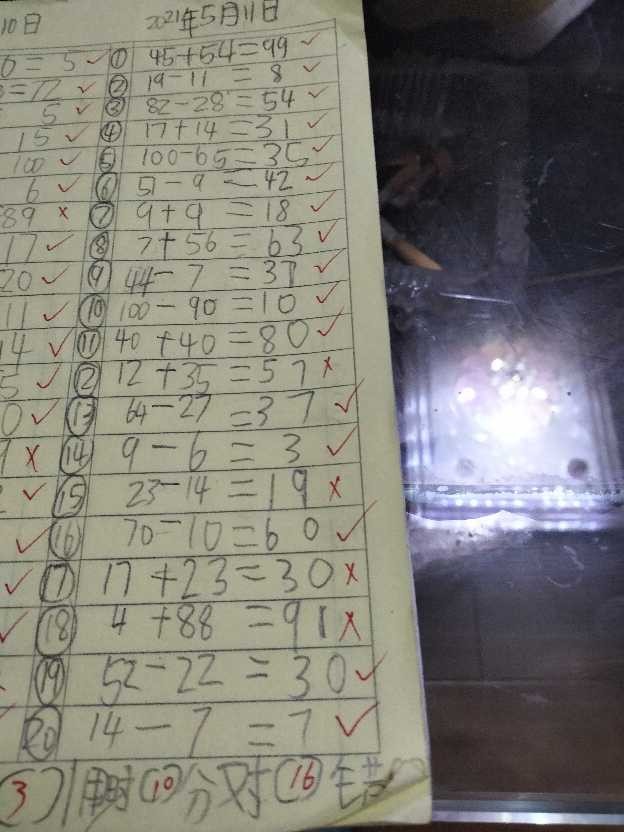 10日 2021年5月11日
0=5✓ ① 45+54=99✓
=12✓ ② 19-11=8✓
5✓ ③ 82-28=54✓
15✓ ④ 17+14=31✓
100✓ ⑤ 100-65=35✓
6✓ ⑥ 51-9=42✓
89× ⑦ 9+9=18✓
17✓ ⑧ 7+56=63✓
20✓ ⑨ 44-7=37✓
11✓ ⑩ 100-90=10✓
14✓ ⑪ 40+40=80✓
5✓ ⑫ 12+35=57×
0✓ ⑬ 64-27=37✓
9× ⑭ 9-6=3✓
✓ ⑮ 23-14=19×
✓ ⑯ 70-10=60✓
✓ ⑰ 17+23=30×
✓ ⑱ 4+88=91×
⑲ 52-22=30✓
⑳ 14-7=7✓
(3) 用时(10)分对(16)错